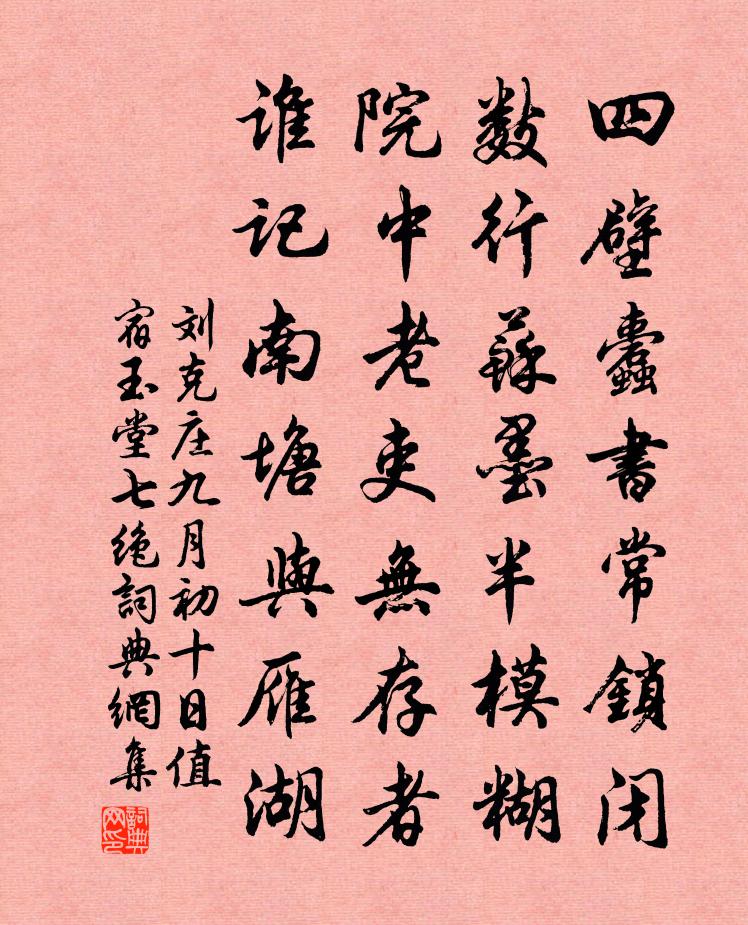 四壁蠹書常鎖闭
數行蘇墨半模糊
院中老吏無存者
谁記南塘與雁湖
刘克庄九月初十日值
宿玉堂七绝詞典網集
詞典网印